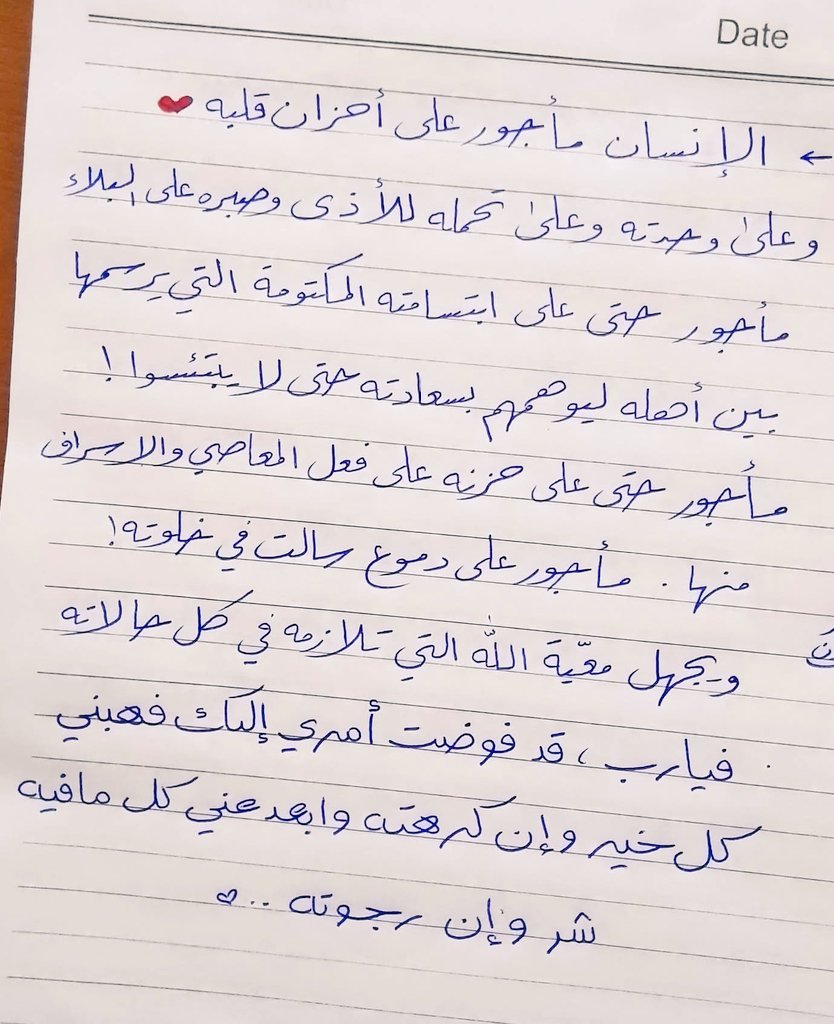 Date
← الإنسان مأجور على أحزان قلبه ❤
وعلىٰ وحدته وعلىٰ تحمله للأذى وصبره على البلاء
مأجور حتى على ابتسامته المكتومة التي يرسمها
بين أهله ليوهمهم بسعادته حتى لا يبتئسوا!
مأجور حتى على حزنه على فعل المعاصي والاسراف
منها. مأجور على دموع سالت في خلوته!
ويجهل معيّة الله التي تلازمه في كل حالاته
فيارب، قد فوضت أمري إليك فهبني
كل خير وإن كرهته وابعد عني كل مافيه
شر وإن رجوته ..♡